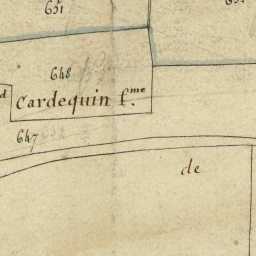 651
648
d
Cardequin f.me
647
de